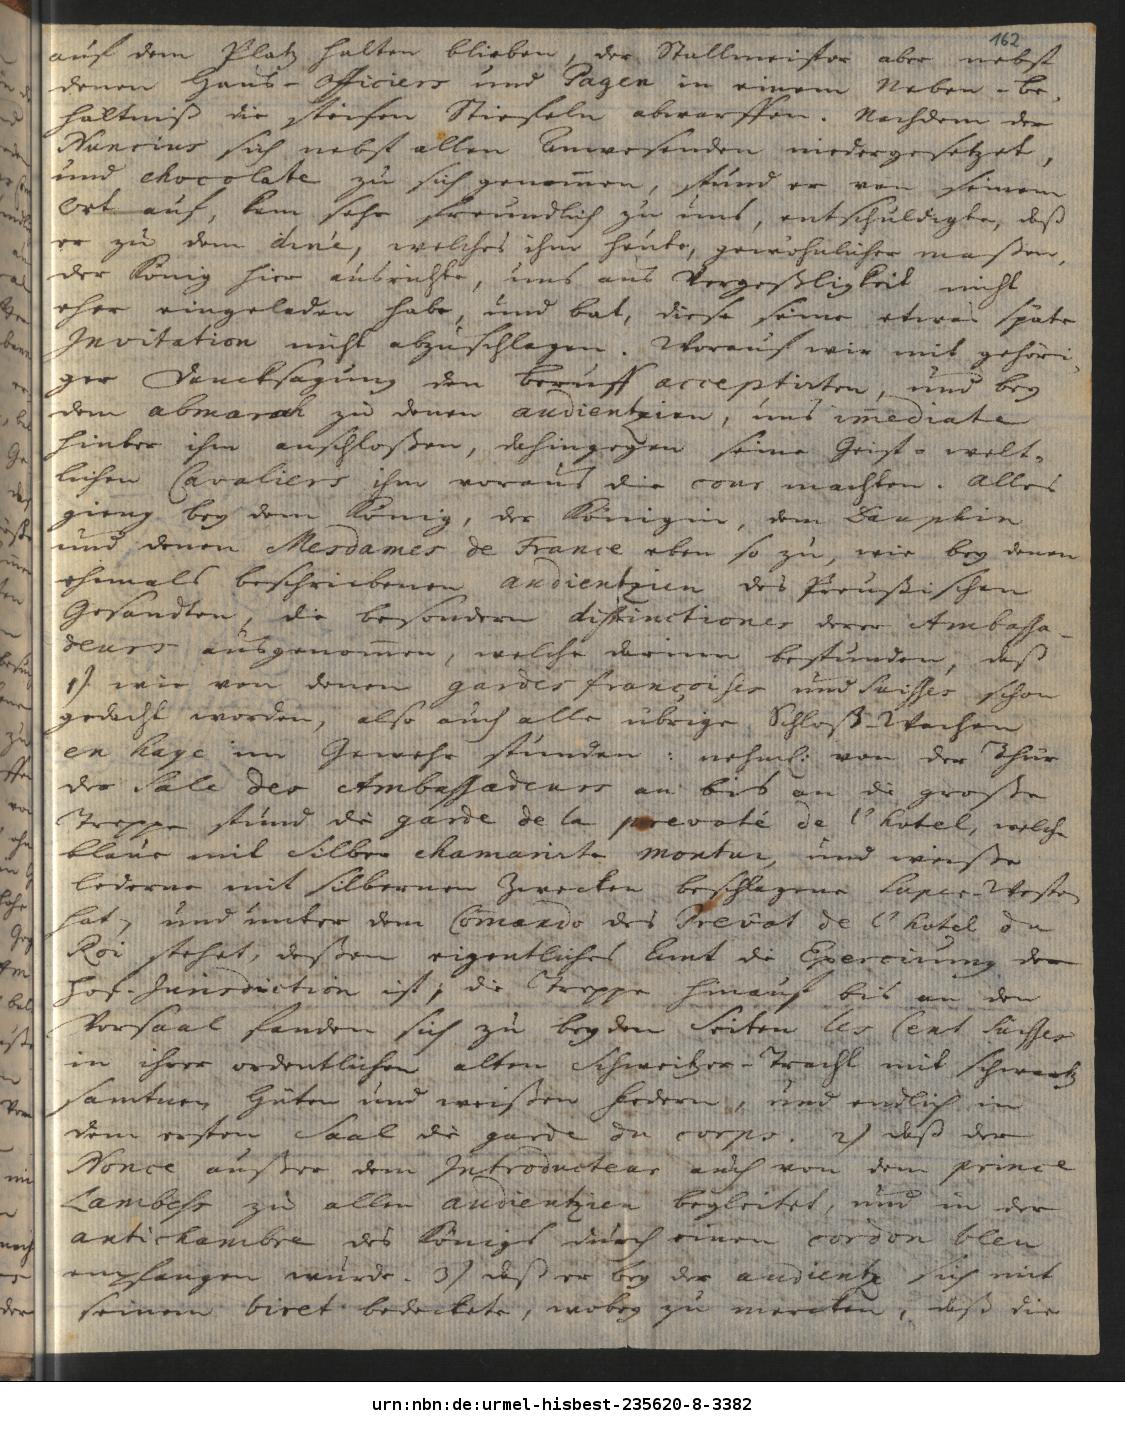 162
auf dem Platz halten blieben, der Stallmeister aber nebst
denen Haus-Officiers und Pagen in einem Neben-be-
hältniß die steifen Stiefeln abwarffen. Nachdem der
Nuncius sich nebst allen Anwesenden niedergesetzet,
und chocolate zu sich genom̄en, stund er von seinem
Ort auf, kam sehr freundlich zu uns, entschuldigte, daß
er zu dem diné, welches ihm heute, gewöhnlicher maßen,
der König hier ausrichte, uns aus Vergeßligkeit nicht
eher eingeladen habe, und bat, diese seine etwas späte
Invitation nicht abzuschlagen. Worauf wir mit gehöri-
ger Dancksagung den beruff acceptirten, und bey
dem abmarch zu denen audientzien, uns im̄ediate
hinter ihm anschloßen, dahingegen seine Geist- welt-
lichen Cavaliers ihm voraus die cour machten. Alles
gieng bey dem König, der Königin, dem Dauphin
und denen Mesdames de France eben so zu, wie bey denen
ehmals beschriebenen audientzien des Preußischen
Gesandten, die besondern distinctiones derer Ambassa-
deurs ausgenom̄en, welche darinn bestunden, daß
1) wie von denen gardes françoises und Suisses schon
gedacht worden, also auch alle übrige Schloß-Wachen
en haye im Gewehr stunden: nehml: von der Thür
der Sale des Ambassadeurs an bis an die große
Treppe stund die garde de la prevoté de l'hotel, welche
blaue mit Silber chamarirte montur, und weisse
lederne mit silbernen Zwecken beschlagene Super-Westen
hat, und unter dem Com̄ando des Prevôt de l'hotel du
Roi stehet, deßen eigentliches Amt die Exercirung der
Hof-Jurisdiction ist; die Treppe hinauf bis an den
Vorsaal fanden sich zu beyden Seiten les Cent Suisses
in ihrer ordentlichen alten Schweitzer-Tracht mit schwartz
samtnen Hüten und weißen Federn, und endlich in
dem ersten Saal die garde du corps. 2) daß der
Nonce außer dem Introducteur auch von dem prince
Lambesc zu allen audientzien begleitet, und in der
antichambre des Königs durch einen cordon bleu
empfangen wurde. 3) daß er bey der audientz sich mit
seinem biret bedeckte, wobey zu mercken, daß die
urn:nbn:de:urmel-hisbest-235620-8-3382